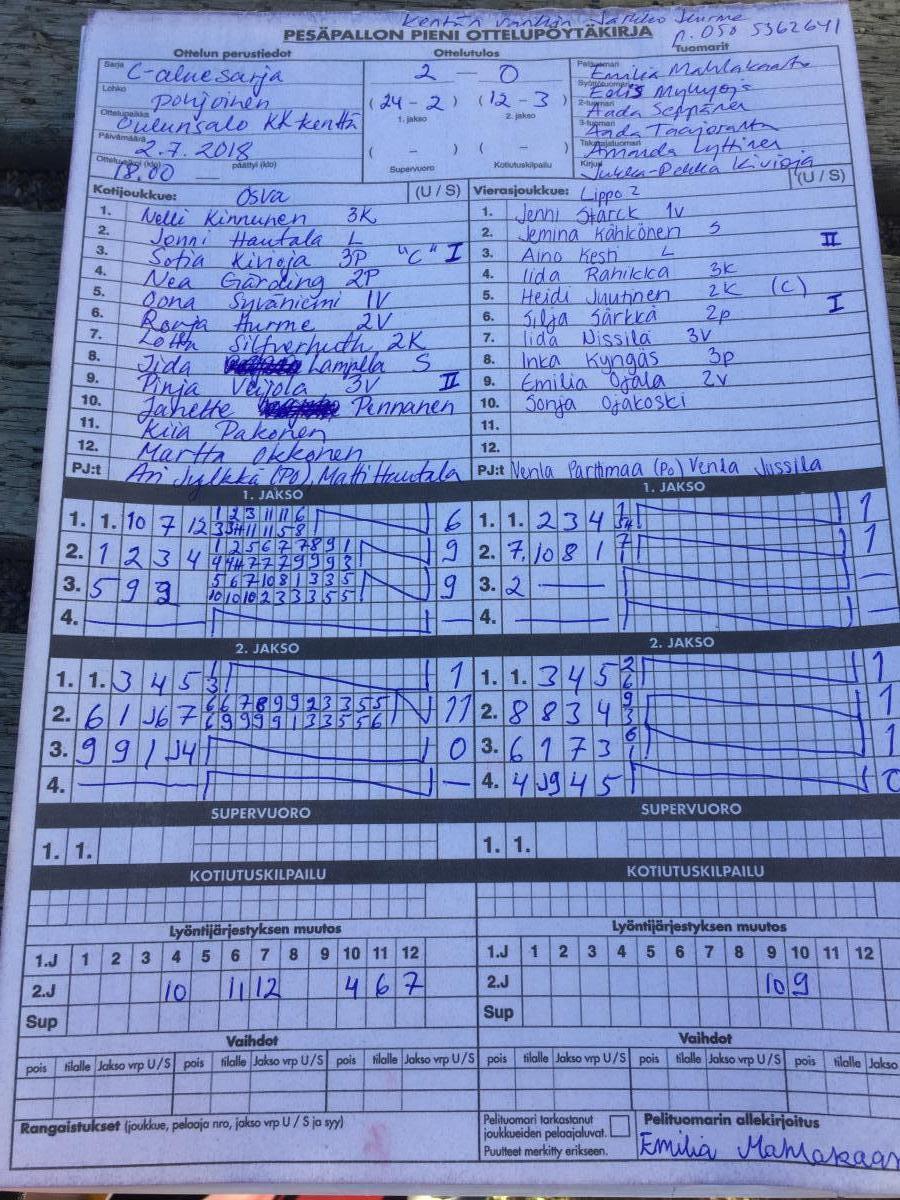 Kentän vanhin Jarkko Hurme
p. 050 5362641
PESÄPALLON PIENI OTTELUPÖYTÄKIRJA
Ottelun perustiedot
Sarja C-aluesarja
Lohko Pohjoinen
Ottelupaikka Oulunsalo KK kenttä
Päivämäärä 2.7.2018
Ottelu alkoi (klo) 18.00 päättyi (klo)
Ottelutulos
2 – 0
(24 - 2) (12 - 3)
1. jakso 2. jakso
( – ) ( – )
Supervuoro Kotiutuskilpailu
Tuomarit
Pelituomari Emilia Mahlakaarto
Syöttötuomari
2-tuomari Aada Seppänen
3-tuomari Aada
Takarajatuomari Amanda Lyttinen
Kirjuri Jukka-Pekka Kivioja
Kotijoukkue: Osva (U / S)
1. Nelli Kinnunen 3K
2. Jonni Hautala L
3. Sofia Kivioja 3P "C" I
4. Nea Gärding 2P
5. Oona Syväniemi 1V
6. Ronja Hurme 2V
7. Lotta Silfverhuth 2K
8. Iida Lampela S
9. Pinja Veijola 3V II
10. Janette Pennanen
11. Kiia Pakonen
12. Martta Okkonen
PJ:t Ari Jylkkä (Po), Matti Hautala
Vierasjoukkue: Lippo 2 (U / S)
1. Jenni Starck 1v
2. Jemina Kähkönen S
3. Aino Kesti L II
4. Iida Rahikka 3k
5. Heidi Juutinen 2k (C)
6. Silja Särkkä 2p I
7. Iida Nissilä 3v
8. Inka Kyngäs 3p
9. Emilia Ojala 2v
10. Sonja Ojakoski
11.
12.
PJ:t Venla Parttimaa (Po) Venla Jussila
1. JAKSO
1. 1. 10 7 12 1 2 3 11 11 6 6
3 3 4 11 11 5 8
2. 1 2 3 4 1 2 5 6 7 7 8 9 1 9
4 4 4 7 7 7 9 9 9 3
3. 5 9 9 5 6 7 10 8 1 3 3 5 9
10 10 10 2 3 3 3 5 5
4. — —
1. JAKSO
1. 1. 2 3 4 1
2. 7 10 8 1 1
3. 2 — —
4. — —
2. JAKSO
1. 1. 3 4 5 1 1
3
2. 6 1 J6 7 6 6 7 8 9 9 2 3 3 5 5 11
6 9 9 9 9 1 3 3 5 5 6
3. 9 9 1 J4 0
4. — —
2. JAKSO
1. 1. 3 4 5 2 1
6
2. 8 8 3 4 9 1
3
3. 6 1 7 3 6 1
1
4. 4 J9 4 5 0
SUPERVUORO
1. 1.
SUPERVUORO
1. 1.
KOTIUTUSKILPAILU
KOTIUTUSKILPAILU
Lyöntijärjestyksen muutos
1.J 1 2 3 4 5 6 7 8 9 10 11 12
2.J 10 11 12 4 6 7
Sup
Lyöntijärjestyksen muutos
1.J 1 2 3 4 5 6 7 8 9 10 11 12
2.J 10 9
Sup
Vaihdot
pois tilalle Jakso vrp U / S pois tilalle Jakso vrp U/S pois tilalle Jakso vrp U / S
Vaihdot
pois tilalle Jakso vrp U / S pois tilalle Jakso vrp U/S pois tilalle Jakso
Rangaistukset (joukkue, pelaaja nro, jakso vrp U / S ja syy)
Pelituomari tarkastanut
joukkueiden pelaajaluvat.
Puutteet merkitty erikseen.
Pelituomarin allekirjoitus
Emilia Mahlakaar